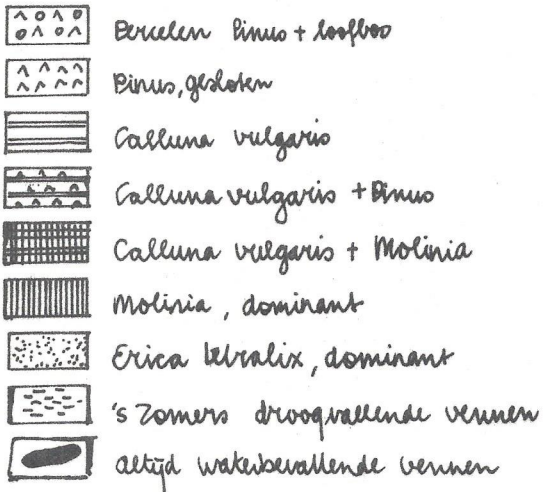 Percelen Pinus + loofbos
Pinus, gesloten
Calluna vulgaris
Calluna vulgaris + Pinus
Calluna vulgaris + Molinia
Molinia, dominant
Erica tetralix, dominant
's Zomers droogvallende vennen
altijd waterbevattende vennen